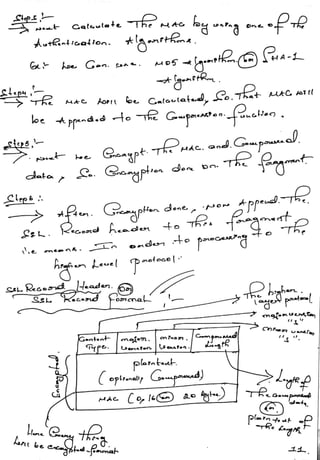 Step3:-
→ Next Calculate The MAC by using one of The
Authentication Algorithms.
Ex:- we Can use MD5 Algorithm (or) SHA-1
Algorithm.
Step4:-
→ The MAC will be Calculated, So. That MAC will
be Appended to The Compression function.
Step5:-
→ Next we Encrypt The MAC. and. Compressed.
data, So Encryption done on The fragment
Step6:-
→ After. Encryption done, Now Append The.
SSL Record header to This fragment
i.e means. In order to processing to The
higher Level protocol.
SSL Record Header (or)
SSL Record Format:-
The higher
layer protocol
major version
"3"
minor version
"1".
Content Type.
major. Version
minor. Version.
Compressed Length
plaintext.
(optionally Compressed)
MAC (0, 16 (or) 20 bytes)
Encrypted
Length of
The Compressed
data
(or)
plaintext of
The Length
here Every thing
will be encrypted format